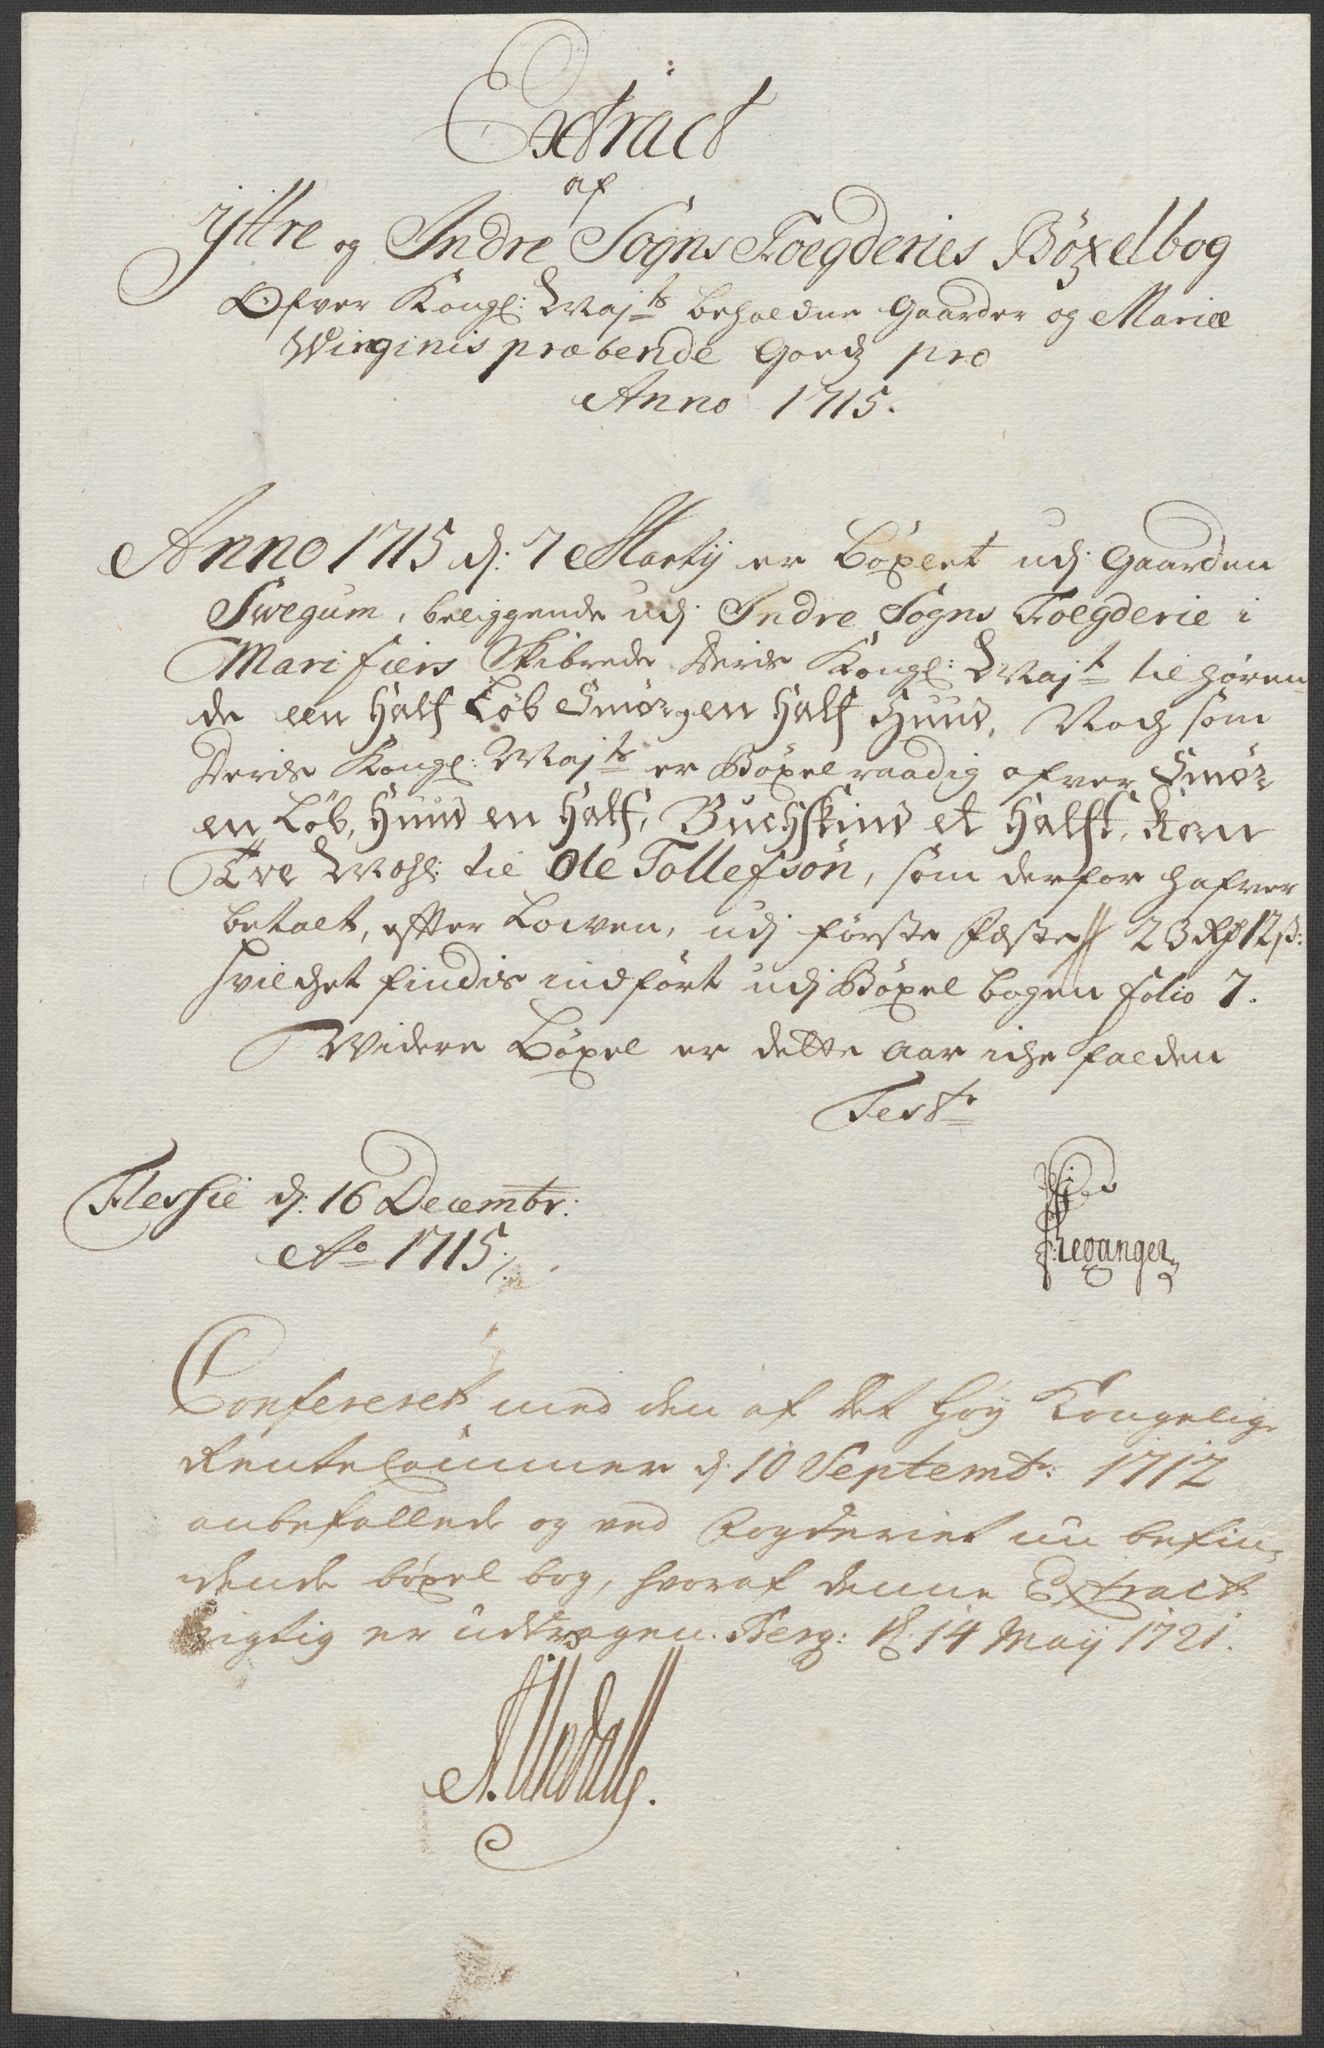 Extract
af
Yttre og Indre Sogns Foegderies Böxelbog
Ofver Kongl: Majts beholdne Gaarder og Mariæ
Wirginis præbende Goedz pro
Anno 1715.
Anno 1715 d: 7 Martij er Böxlet udj Gaarden
Svegum, beliggende udj Indre Sogns Foegderie i
Marifiers Skibrede Deris Kongl: Majt tilhören
de een Half Löb Smör, en Half Huud, Noch som
Deris Kongl: Majts er Böxel raadig ofver, Smör
en Löb, Huud en Half, Buchskind et Halft, korn
Tre Mæhl: til Ole Tollefsön, som derfor hafver
betalt, efter Lowen, udj förste fæste 23 Rd 12 s:
hvilchet findis indfört udj Böxel bogen folio 7.
Widere Böxel er dette Aar iche falden
Test:
Flesche d: 16 Decembr:
Ao 1715
Confereret med den af det Höy Kongelig
Rentecammer d: 10 Septembr: 1712
anbefallede og ved Fogderiet nu befin
dende böxel bog, hvoraf denne Extract
rigtig er uddragen. Berg: d. 14 Maij 1721.